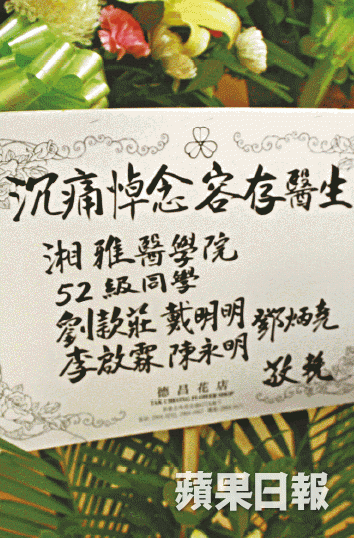 沉痛悼念容存醫生
湘雅醫學院
52級同學
劉歆莊 戴明明 鄧炳堯
李啟霖 陳永明
敬輓
德昌花店
TAK CHEONG FLOWER SHOP
蘋果日報